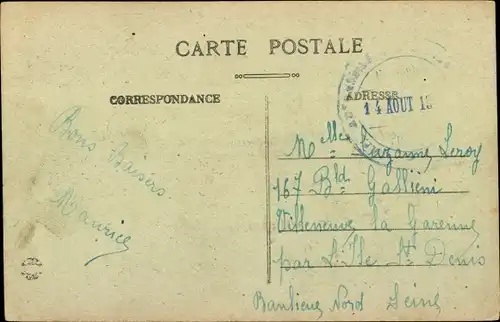 CARTE POSTALE
CORRESPONDANCE
ADRESSE
14 AOUT 15
Bons Baisers
Maurice
Melle Suzanne Leroy
167 Bld Gallieni
Villeneuve la Garenne
par L'Ile St Denis
Banlieue Nord Seine